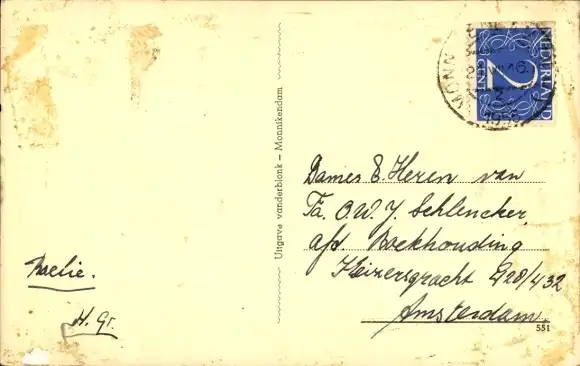 NEDERLAND
2
CENT
MONN
16.
1956
Dames & Heren van
Fa. O.W.J. Schlencker,
afd. Boekhouding
Keizersgracht 428/432
Amsterdam.
551
Uitgave vanderblonk — Monnikendam
H. Gr.